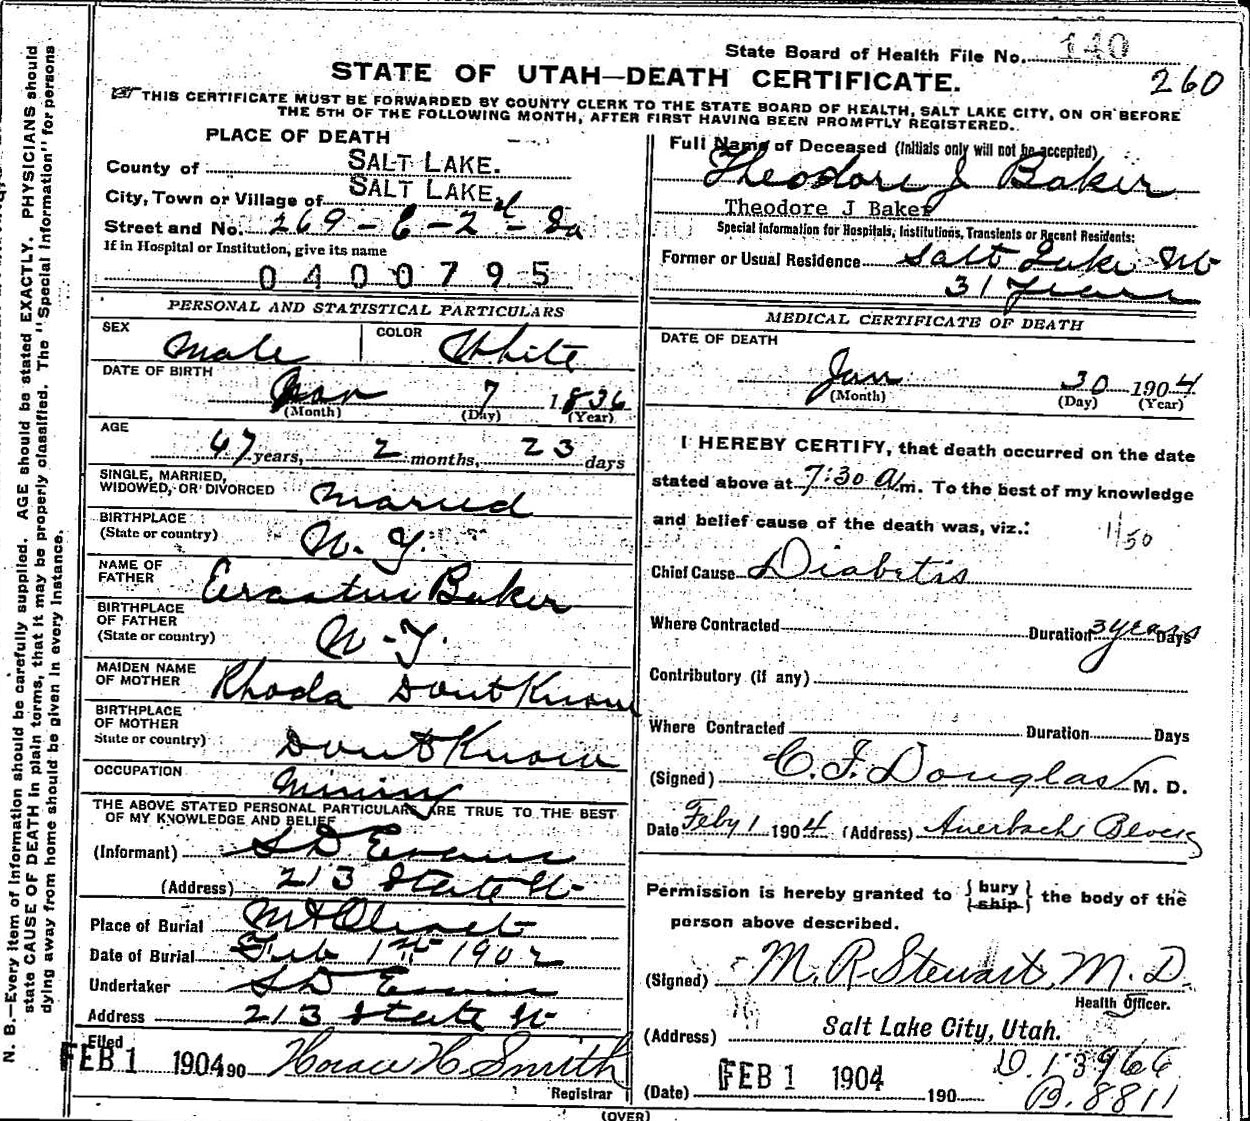 State Board of Health File No. 140
260
STATE OF UTAH—DEATH CERTIFICATE.
THIS CERTIFICATE MUST BE FORWARDED BY COUNTY CLERK TO THE STATE BOARD OF HEALTH, SALT LAKE CITY, ON OR BEFORE
THE 5TH OF THE FOLLOWING MONTH, AFTER FIRST HAVING BEEN PROMPTLY REGISTERED.
PLACE OF DEATH
County of SALT LAKE.
City, Town or Village of SALT LAKE.
Street and No. 269 - E - 2d - So
If in Hospital or Institution, give its name
0400795
PERSONAL AND STATISTICAL PARTICULARS
SEX Male COLOR White
DATE OF BIRTH
7 1836
(Month) (Day) (Year)
AGE
67 years, 2 months, 23 days
SINGLE, MARRIED,
WIDOWED, OR DIVORCED Maried
BIRTHPLACE
(State or country) N. Y.
NAME OF
FATHER Erastus Baker
BIRTHPLACE
OF FATHER
(State or country) N-Y.
MAIDEN NAME
OF MOTHER Rhoda Dont Know
BIRTHPLACE
OF MOTHER
State or country) Dont Know
OCCUPATION Mining
THE ABOVE STATED PERSONAL PARTICULARS ARE TRUE TO THE BEST
OF MY KNOWLEDGE AND BELIEF
(Informant) S D Evans
(Address) 213 State St
Place of Burial Mt Olivet
Date of Burial Feb 1st 1902
Undertaker S D Evans
Address 213 State St
Filed
FEB 1 1904 90 Horace H Smith
Registrar
Full Name of Deceased (Initials only will not be accepted)
Theodore J Baker
Theodore J Baker
Special Information for Hospitals, Institutions, Transients or Recent Residents:
Former or Usual Residence Salt Lake
31 Years
MEDICAL CERTIFICATE OF DEATH
DATE OF DEATH
Jan 30 1904
(Month) (Day) (Year)
I HEREBY CERTIFY, that death occurred on the date
stated above at 7:30 A m. To the best of my knowledge
and belief cause of the death was, viz.:
1/50
Chief Cause Diabetis
Where Contracted Duration 3 years Days
Contributory (if any)
Where Contracted Duration Days
(Signed) C. F. Douglas M. D.
Date Feby 1 1904 (Address) Auerbach Block
Permission is hereby granted to {bury
ship} the body of the
person above described.
(Signed) M. R. Stewart, M. D.
Health Officer.
(Address) Salt Lake City, Utah.
D. 13966
(Date) FEB 1 1904 190
B. 8811
(OVER)
N. B.—Every item of information should be carefully supplied. AGE should be stated EXACTLY. PHYSICIANS should
state CAUSE OF DEATH in plain terms, that it may be properly classified. The "Special Information" for persons
dying away from home should be given in every instance.